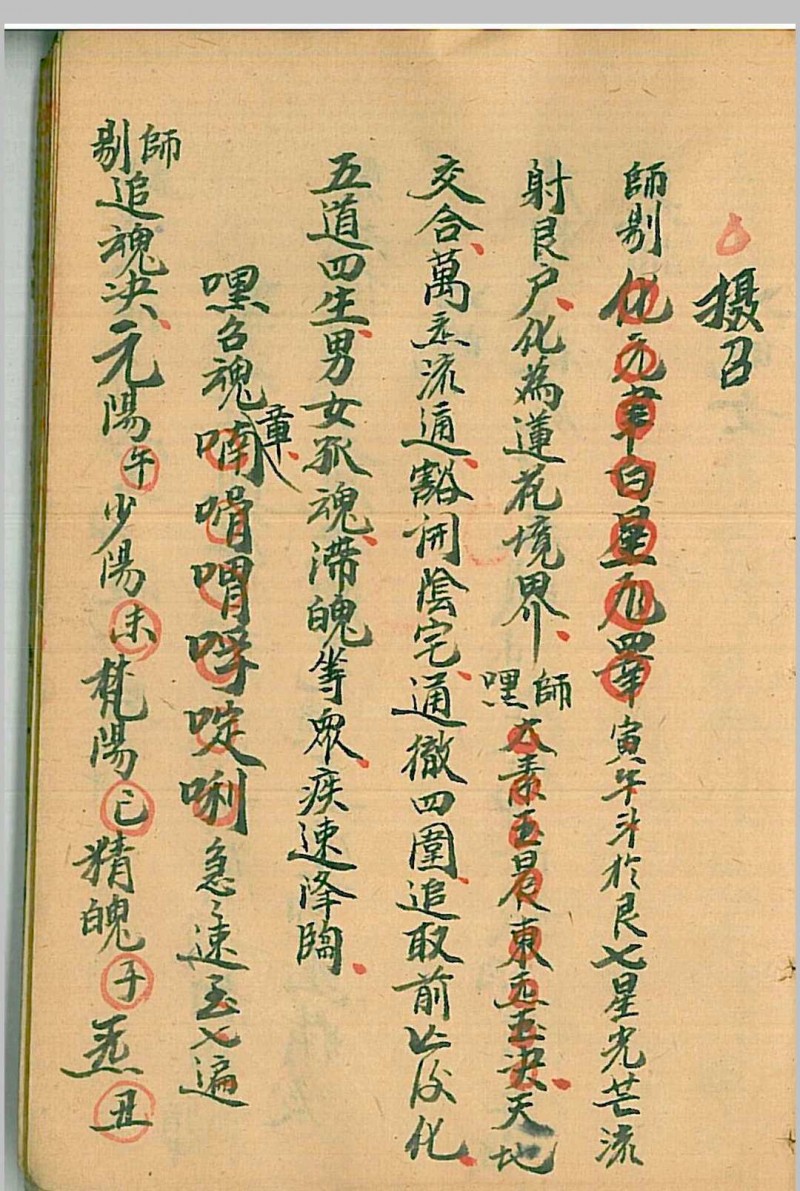 摄召
師剔化元聿白星尨睪寅午斗於艮七星光芒流
射艮户化為蓮花境界師嘿太素玉晨東西玉决天地
交合萬炁流通豁開陰宅通徹四圍追取前亡後化
五道四生男女孤魂滞魄等衆疾速降臨
嘿召魂章喃啨喟哹啶唎急々速至七遍
師剔追魂决元陽午少陽未梵陽巳猜魄子炁丑